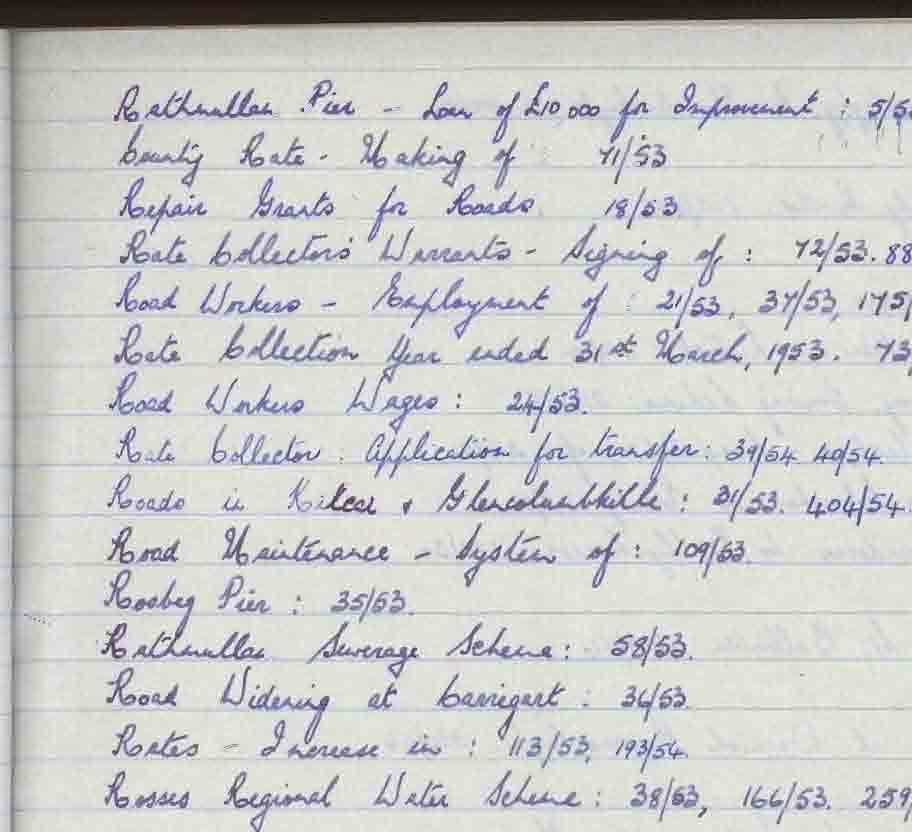 Rathmullan Pier - Loan of £10,000 for Improvement : 5/5
County Rate - Making of : 71/53
Repair Grants for Roads. 18/53
Rate Collectors' Warrants - Signing of : 72/53. 88
Road Workers - Employment of : 21/53, 37/53, 175/
Rate Collection Year ended 31st March, 1953. 73/
Road Workers Wages : 24/53.
Rate Collector : Application for transfer : 39/54. 40/54.
Roads in Kilcar & Glencolumbkille : 31/53. 404/54.
Road Maintenance - System of : 109/53.
Rosbeg Pier : 35/53.
Rathmullan Sewerage Scheme : 58/53.
Road Widening at Carrigart : 36/53.
Rates - Increase in : 113/53, 193/54.
Rosses Regional Water Scheme : 38/53, 166/53. 259/